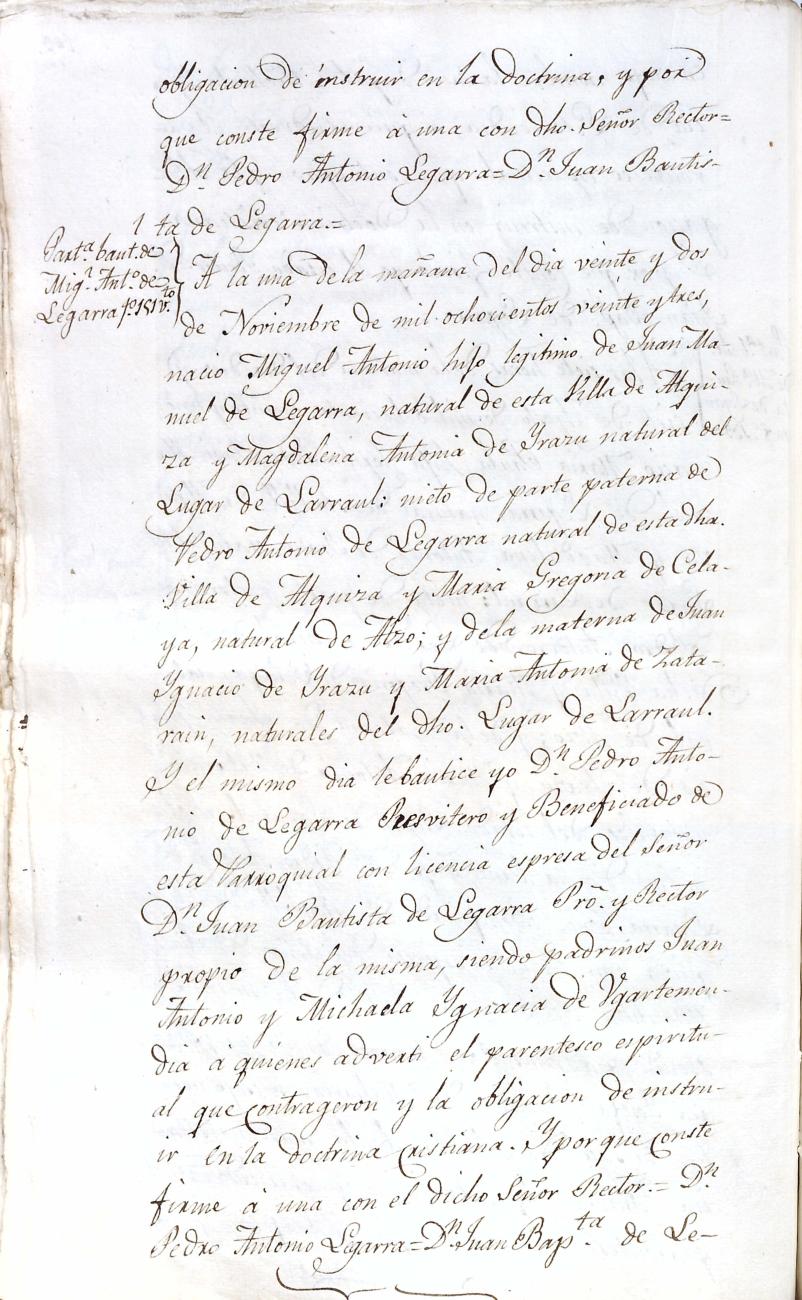 obligacion de instruir en la doctrina, y por
que conste firme á una con dho. Señor Rector=
Dn. Pedro Antonio Legarra= Dn. Juan Bautis-
ta de Legarra.=
Parta. baut. de
Migl. Anto. de
Legarra fo. 151 vto.
A la una de la mañana del dia veinte y dos
de Noviembre de mil ochocientos veinte y tres,
nacio Miguel Antonio hijo legitimo de Juan Ma-
nuel de Legarra, natural de esta Villa de Alqui-
za y Magdalena Antonia de Yrazu natural del
Lugar de Larraul: nieto de parte paterna de
Pedro Antonio de Legarra natural de esta dha.
Villa de Alquiza y Maria Gregoria de Cela-
ya, natural de Alzo; y de la materna de Juan
Ygnacio de Yrazu y Maria Antonia de Zata-
rain, naturales del dho. Lugar de Larraul.
Y el mismo dia le bautice yo Dn. Pedro Anto-
nio de Legarra Presvitero y Beneficiado de
esta Parroquial con licencia espresa del Señor
Dn. Juan Bautista de Legarra Pro. y Rector
propio de la misma, siendo padrinos Juan
Antonio y Michaela Ygnacia de Ugartemen-
dia á quienes adverti el parentesco espiritu-
al que contrageron y la obligacion de instru-
ir en la doctrina Cristiana. Y por que conste
firme á una con el dicho Señor Rector.= Dn.
Pedro Antonio Legarra= Dn. Juan Bapta. de Le-